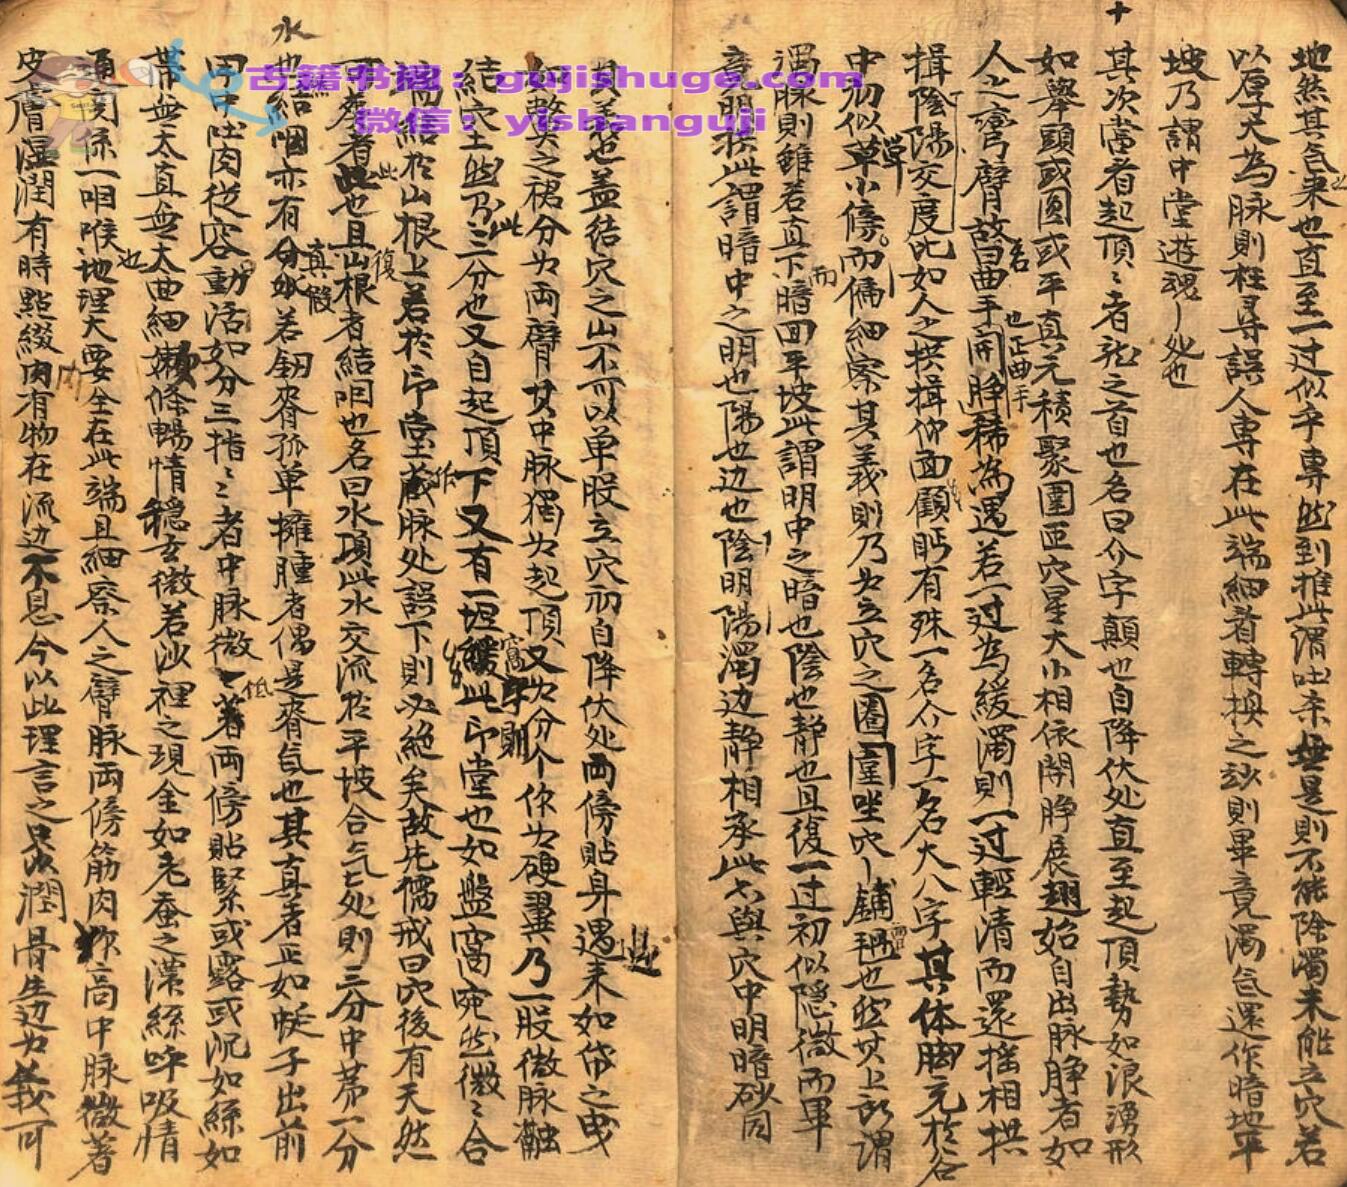 地然其氣来也直至一过似乎專然到推此謂吐柰是則不能除濁未能立穴若
以厚大為脉則枉尋誤人專在此端細看轉换之玅則畢竟濁氣還作暗地平
坡乃謂中堂遊魂处也
十
其次當看起頂〻者龍之首也名曰介字顛也自降伏处直至起頂勢如浪湧形
如舉頭或圓或平真元積聚圍匝穴星大小相依開睁展翅始自出脉睁者如
人之彎臂故曰曲手開睁稀為遇若一过為緩濁則一过輕清而還摇相拱
也正曲手
揖陰陽交度比如人之拱揖仰面顧眄有殊一名个字一名大八字其体脚元於谷
中初似草小傍而偏細察其義則乃为立穴之圈圍坐穴舖褟也然其上所謂
濁脉則雖若直下暗回平坡此謂明中之暗也陰也静也且復一过初似隐微而畢
竟明挾此謂暗中之明也陽也边也陰明陽濁边静相承此與穴中明暗砂同
其義也盖結穴之山不可以单股立穴初自降伏处兩傍貼身遇来如帒之曳
如數之裙分为兩臂其中脉獨为起頂又为分个你为硬翼乃一股微脉融
結穴土然乃三分也又自起頂下又有一坦緩此印堂也如盤窩宛然微〻合
窩結於山根上若於印堂蔵脉处誤下則必絶矣故先儒戒曰穴後有天然
可奉者此也且山根者結咽也名曰水項此水交流於平坡合气处則三分中第一分
水
也結咽亦有分水若釼脊孤单擁腫者偶是脊气也其真者正如蜈子出前
真假
田中吐肉従容動活如分三指〻者中脉微〻著兩傍貼緊或露或沉如絲如
帯無太直無大曲細嫩條暢情穏玄微若沙裡之現金如老蚕之濃絲呼吸情
項関係一咽喉地理大要全在此端且細察人之臂脉兩傍筋肉你高中脉微著
皮膚温潤有時點綴肉有物在流边不息今以此理言之潤骨生边为義可
古籍书阁：gujishuge.com
微信：yishanguji